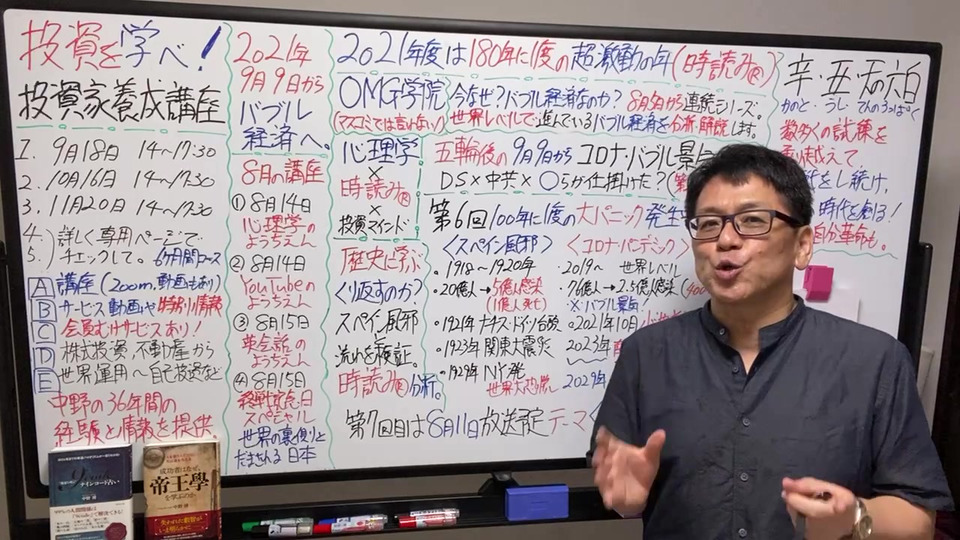 投資を学べ!
投資家養成講座
1. 9月18日 14〜17:30
2. 10月16日 14〜17:30
3. 11月20日 14〜17:30
4. 詳しく専用ページで
5. チェックして。6ヶ月間コース
A 講座(zoom、動画もあり)
B サービス動画や特別情報
C 会員むけサービスあり!
D 株式投資、不動産から
E 世界運用〜自己投資など
中野の36年間の
経験と情報を提供
2021年
9月9日から
バブル
経済へ。
8月の講座
① 8月14日
心理学の
ようちえん
② 8月14日
YouTubeの
ようちえん
③ 8月15日
英会話の
ようちえん
④ 8月15日
終戦記念日
スペシャル
世界の裏側と
だまされる日本
2021年度は180年に1度の超激動の年(時読み®)
OMG学院
(マスコミでは言れない)
今なぜ?バブル経済なのか? 8月5日から連続シリーズ。
世界レベルで進んでいるバブル経済を分析・解説します。
心理学
×
時読み®
×
投資マインド
五輪後の9月9日からコロナ・バブル景気
DS×中共×〇らが仕掛けた?
第6回100年に1度の大パニック発生
歴史に学ぶ
くり返すのか?
スペイン風邪
流れを検証。
時読み®分析。
<スペイン風邪>
・1918〜1920年
・20億人→5億人感染
(1億人死亡)
・1921年ナチス・ドイツ台頭
・1923年関東大震災
・1929年NY発
世界大恐慌
<コロナパンデミック>
・2019〜 世界レベル
・76億人→2.5億人感染
※バブル景気
・2021年10月
2023年
2029年
第7回目は8月11日放送予定 テーマ<
辛・丑・天の六白
かのと・うし・てんのろっぱく
数多くの試練を
乗り越えて
をし続け、
時代を創る!
自分革命も。
帝王學
成功者はなぜ、
を学ぶのか